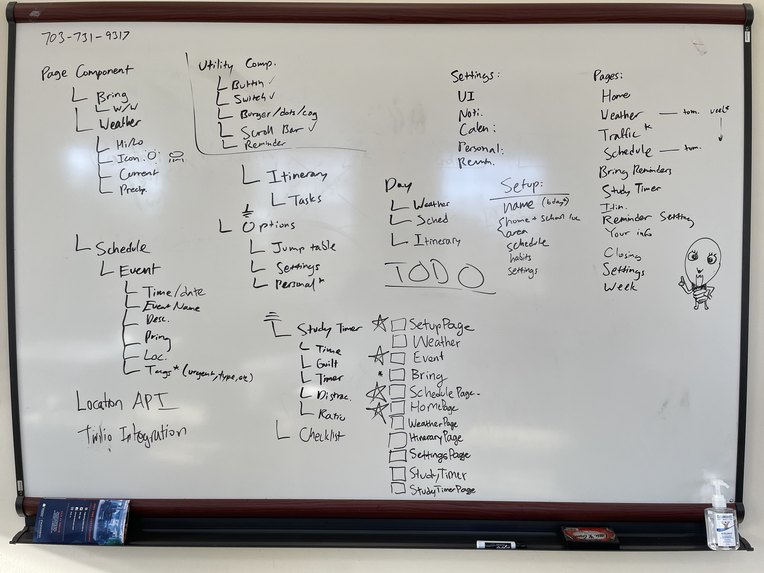 703-731-9317
Page Component
Bring
W/W
Weather
Hi/Lo
Icon:
Current
Precip.
Schedule
Event
Time/date
Event Name
Desc.
Bring
Loc.
Tags* (urgent, type, etc)
Location API
Twilio Integration
Utility Comp.
Button ✓
Switch ✓
Burger/dots/cog
Scroll Bar ✓
Reminder
Itinerary
Tasks
Options
Jump table
Settings
Personal*
Study Timer
Time
Guilt
Timer
Distrac.
Ratio
Checklist
Day
Weather
Sched
Itinerary
TODO
SetupPage
Weather
Event
Bring
SchedulePage-
HomePage
WeatherPage
ItineraryPage
SettingsPage
StudyTimer
StudyTimerPage
Settings:
UI
Noti.
Calen:
Personal:
Setup:
name (bday)
home + school
area
schedule
habits
settings
Pages:
Home
Weather — tom. week
Traffic*
Schedule — tom.
Bring Reminders
Study Timer
Itin.
Reminder Setting
Your info
Closing
Settings
Week